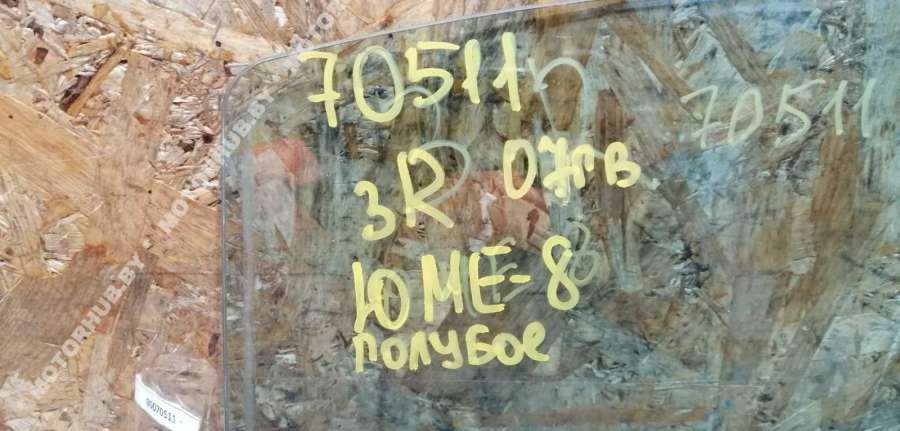 70511
70511
3R 07гв
ЮМЕ-8
голубое
00070511
MOTORHUB.BY - MOTORHUB.BY - MOTORHUB.BY